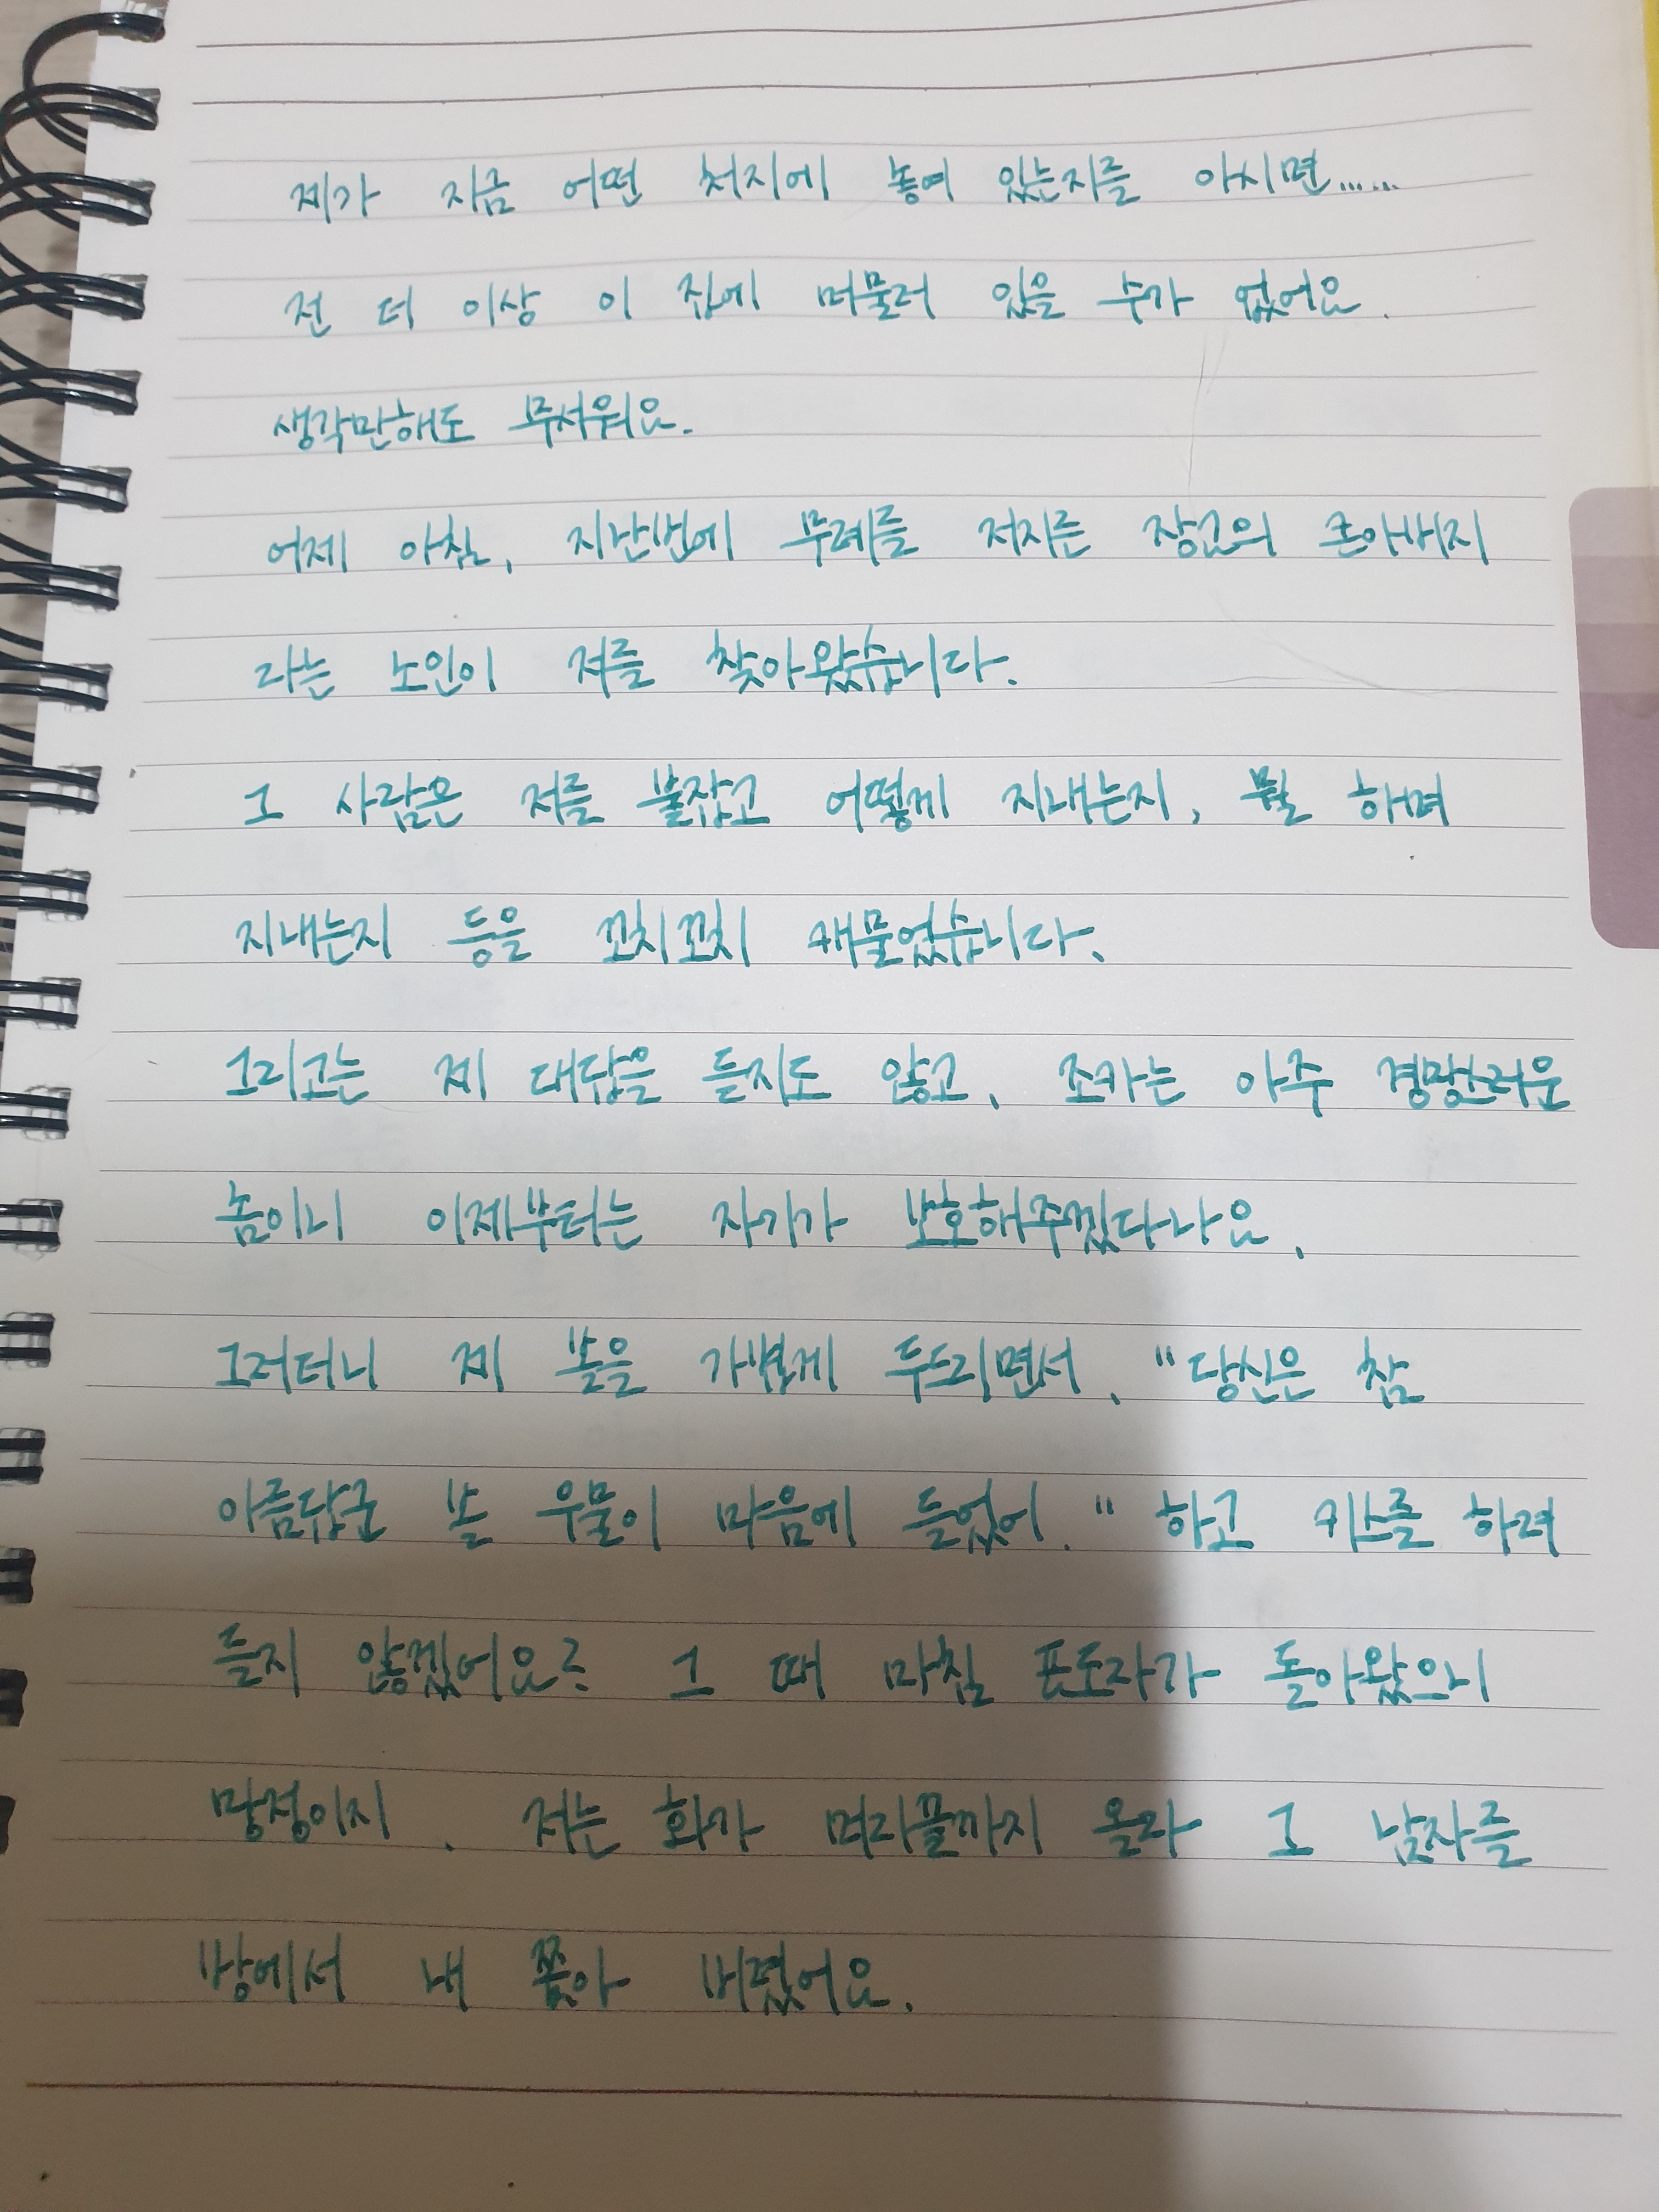 제가 지금 어떤 처지에 놓여 있는지를 아시면......
전 더 이상 이 집에 머물러 있을 수가 없어요.
생각만해도 무서워요.
어제 아침, 지난번에 무례를 저지른 장교의 큰아버지
라는 노인이 저를 찾아왔습니다.
그 사람은 저를 붙잡고 어떻게 지내는지, 뭘 하며
지내는지 등을 꼬치꼬치 캐물었습니다.
그리고는 제 대답을 듣지도 않고, 조카는 아주 경망스러운
놈이니 이제부터는 자기가 보호해주겠다나요.
그러더니 제 볼을 가볍게 두드리면서, "당신은 참
아름답군 볼 우물이 마음에 들었어." 하고 키스를 하려
들지 않겠어요? 그 때 마침 표도라가 돌아왔으니
망정이지. 저는 화가 머리끝까지 올라 그 남자를
방에서 내 쫓아 버렸어요.